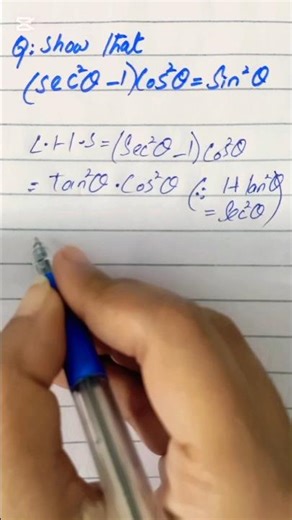 CapCut
Q: Show that
(sec²θ-1)Cos²θ = Sin²θ
L.H.S = (Sec²θ-1)Cos²θ
= tan²θ . Cos²θ (∵ 1+tan²θ
= Sec²θ)